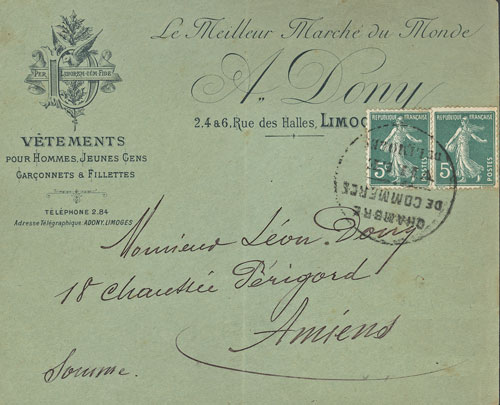 Le Meilleur Marché du Monde
PER LABOREM CUM FIDE
A. Dony
2.4 & 6, Rue des Halles, LIMOG
VÊTEMENTS
POUR HOMMES, JEUNES GENS
GARÇONNETS & FILLETTES
TÉLÉPHONE 2.84
Adresse Télégraphique: ADONY, LIMOGES
REPUBLIQUE FRANÇAISE
5 POSTES
REPUBLIQUE FRANÇAISE
5 POSTES
CHAMBRE
DE COMMERCE
Monsieur Léon Dony
18 chaussée Périgord
Amiens
Somme.